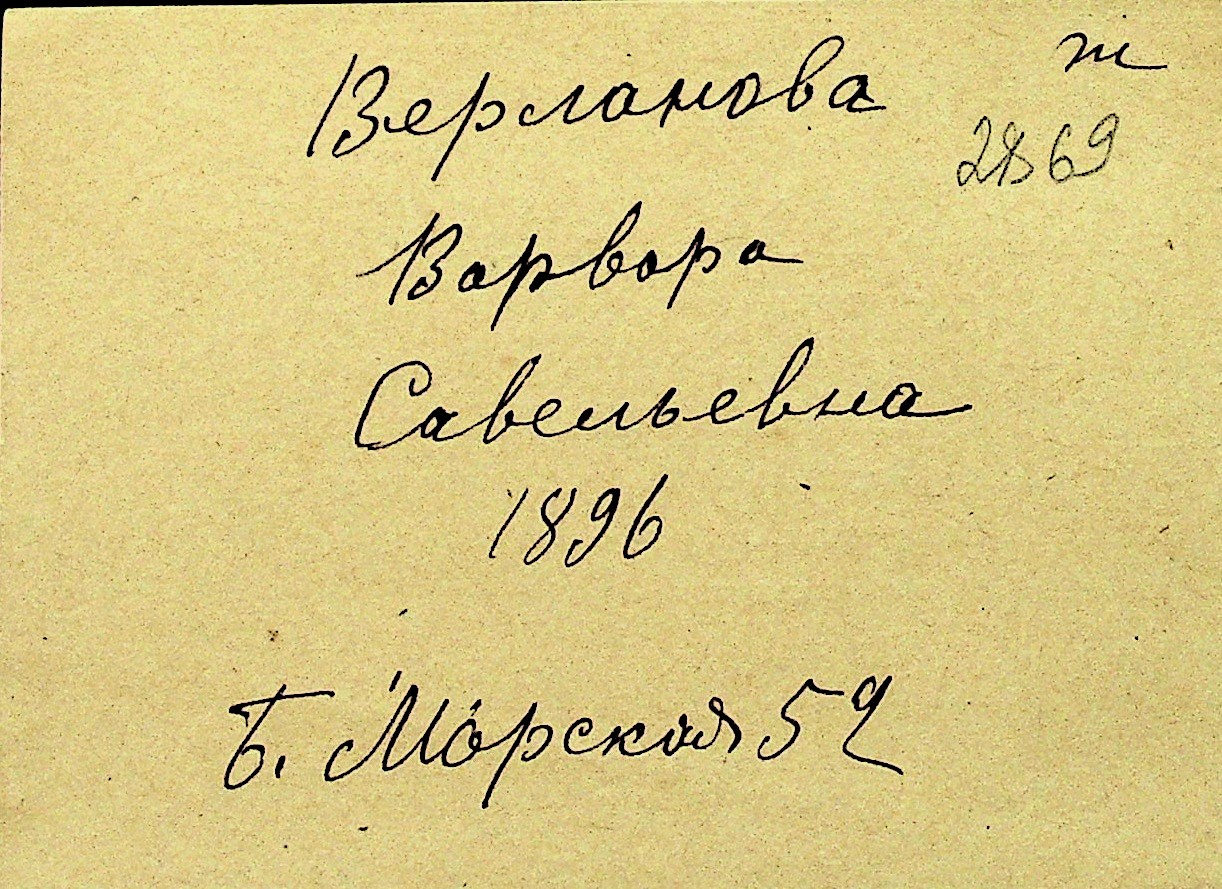 Верланова
т
2869
Варвара
Савельевна
1896
Б. Морская 52